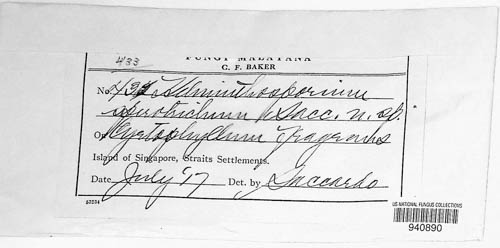 433
FUNGI MALAYANA
C. F. BAKER
No. 433 Helminthosporium
apiotrichum Sacc. n. sp.
On Cyrtophyllum fragrans
Island of Singapore, Straits Settlements.
Date July '17 Det. by Saccardo
52234
US NATIONAL FUNGUS COLLECTIONS
940890